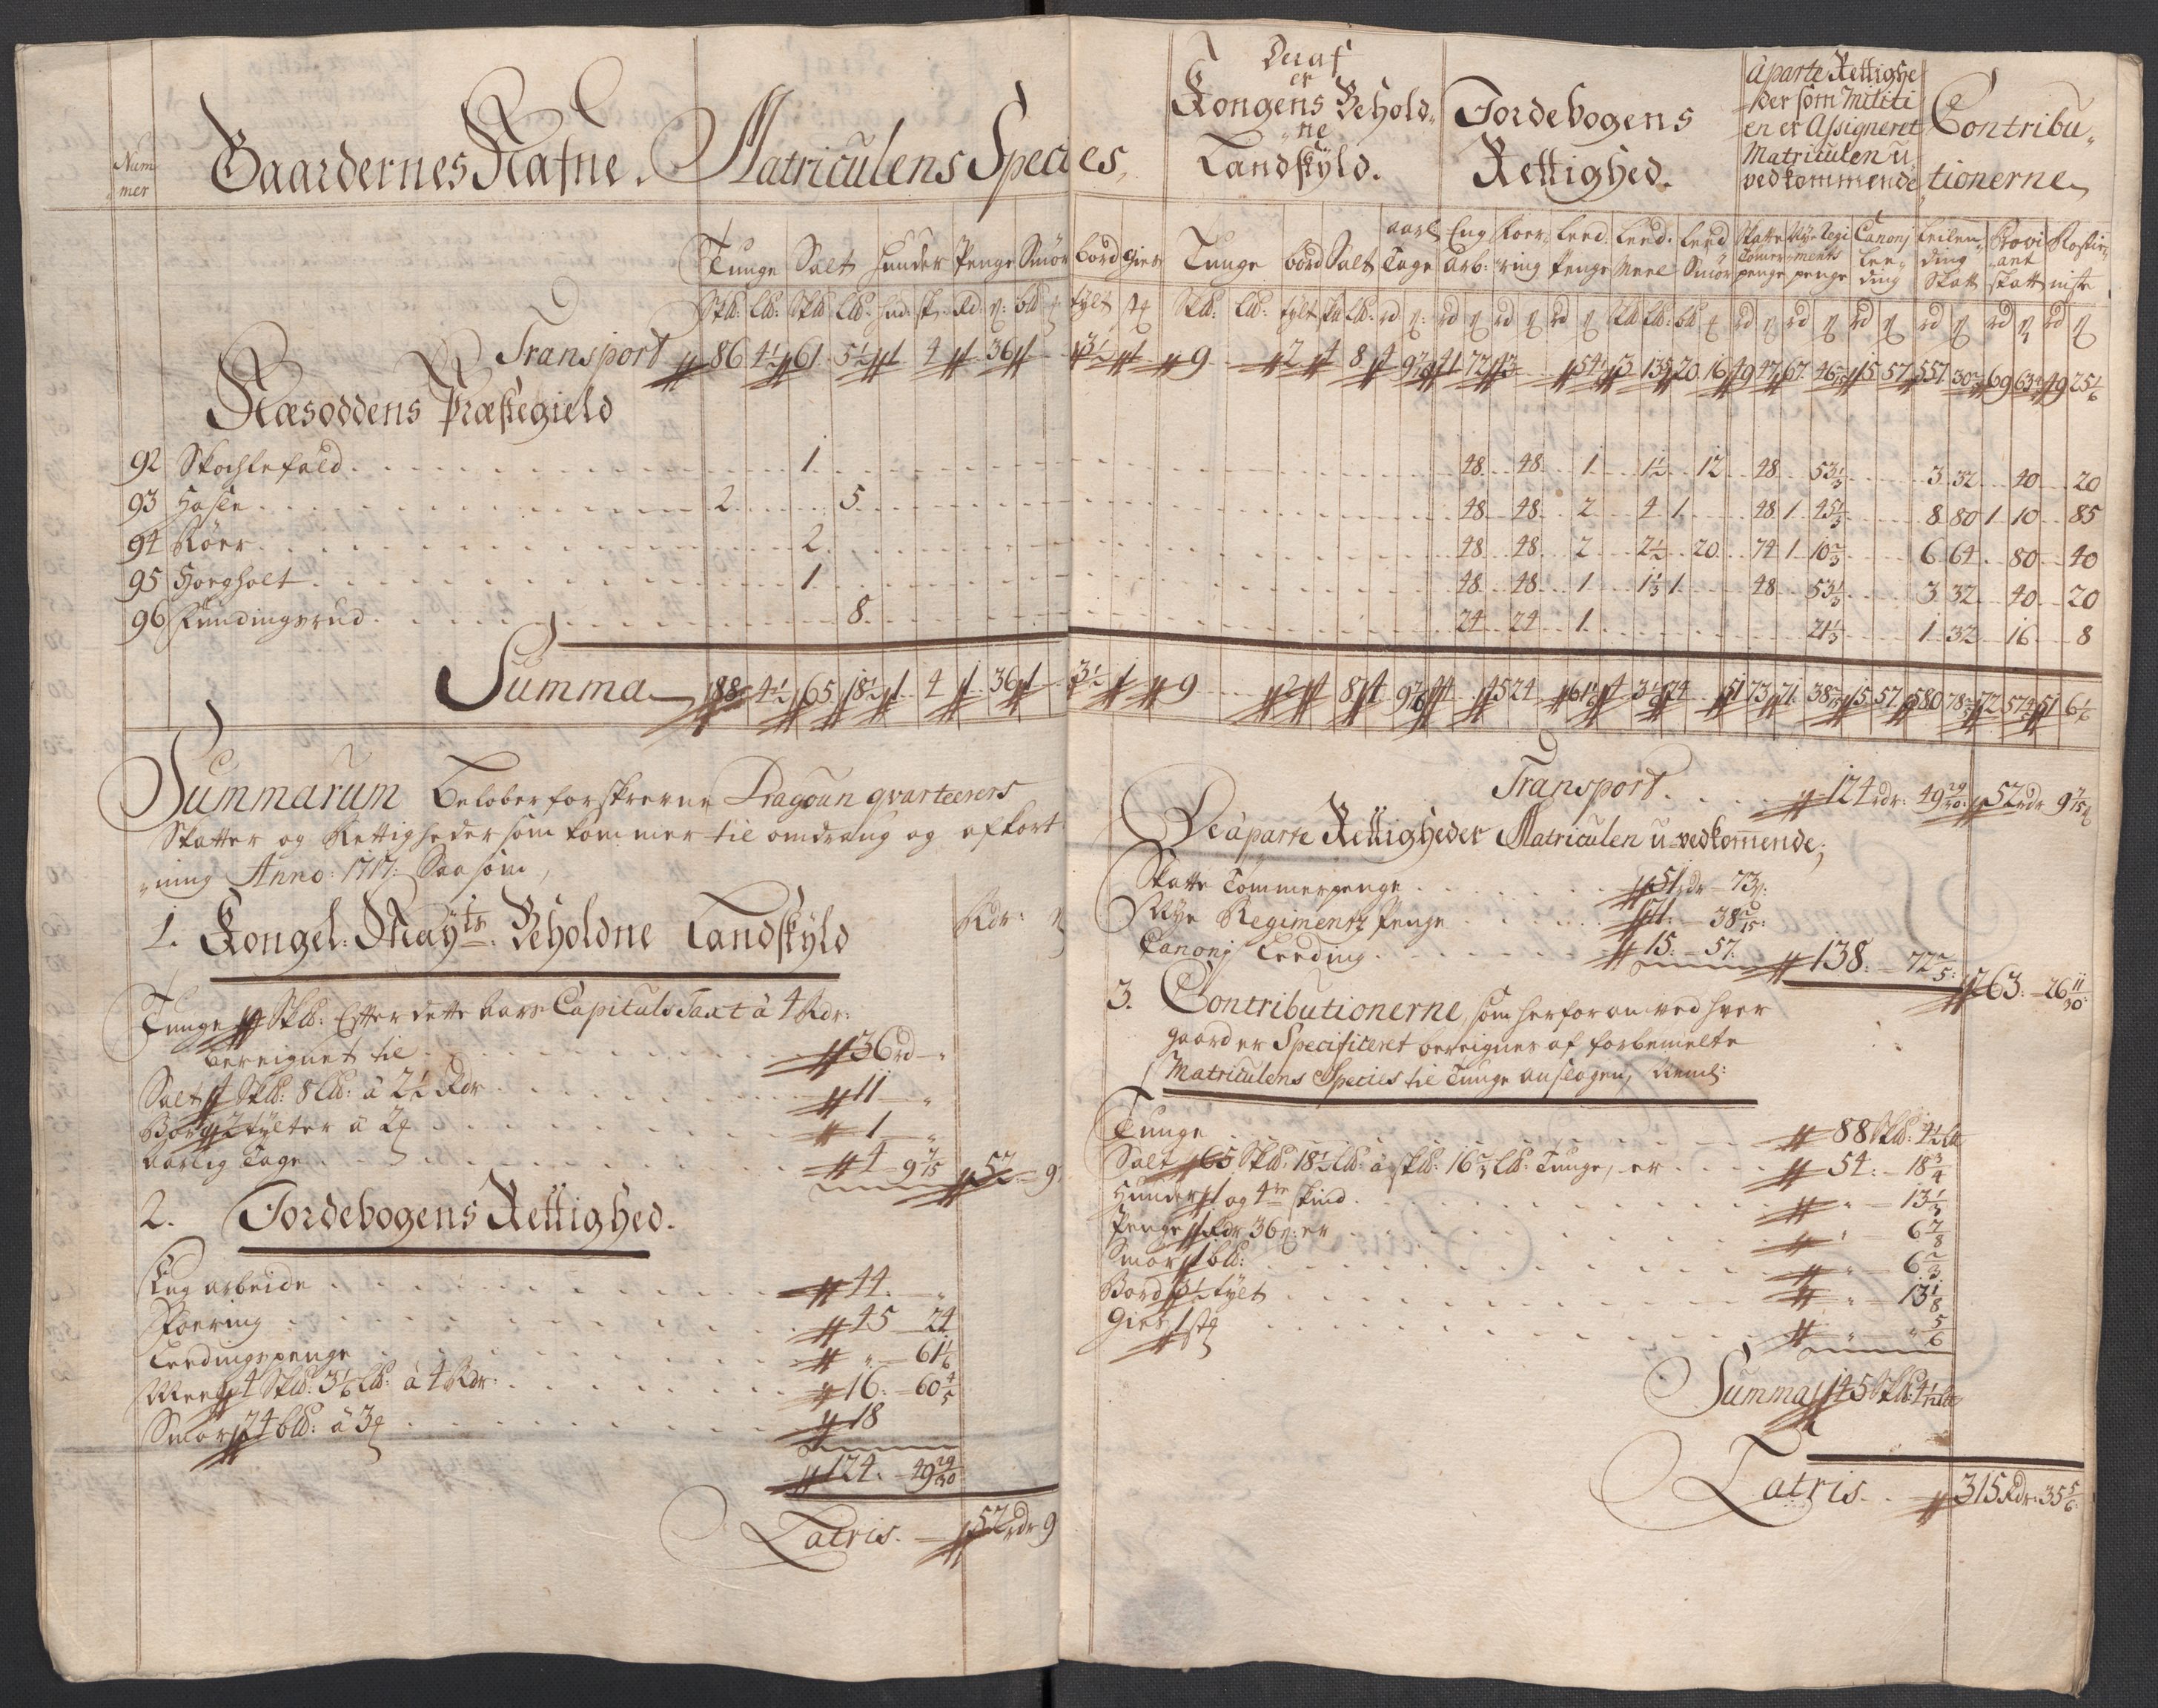 Num
mer
Gaardernes Nafne.
Matriculens Species,
Deraf
er
Kongens Behold„
ne
Landskyld.
Jordebogens
Rettighed.
àparte Rettighe
der som Militi
en er Assigneret
Matriculen u„
vedkommende
Contribu„
tionerne
Tunge Salt Hunder Penge Smør bord Gier
Tunge bord Salt aarl. Tage
Eng arb: Foer„ring Leed. Penge Leed. Meel Leed Smør
Skatte Tømer penge Nye Regiments penge Canonj Lee„ding
Leilen„ding Skatt Provi„ant skatt Rostie„niste
Transport 86 4½ 61 5½ 1 4 1 36 1 3½ 1 9 2 4 8 4 9 7/15 41 72 43 54 3 13 20 16 49 47 67 46 15 57 557 30 69 63 49 25 1/6
Næsoddens Præstegield
92 Skochlefald 1 48 48 1 1½ 12 48 53⅓ 3 32 40 20
93 Hasle 2 5 48 48 2 4 1 48 1 45⅓ 8 80 1 10 85
94 Röer 2 48 48 2 2½ 20 74 1 10⅔ 6 64 80 40
95 Horgholt 1 48 48 1 1⅓ 1 48 53⅓ 3 32 40 20
96 Fundingsrud 8 24 24 1 21⅓ 1 32 16 8
Summa 88 4½ 65 18½ 1 4 1 36 1 3½ 1 9 2 4 8 4 9 7/15 44 45 24 61 1/6 4 3 1/6 74 51 73 71 38 15 57 580 78 72 57 51 6 1/6
Summarum Beløber forskrevne Dragoun qvarteerers
Skatter og Rettigheder som kommer til omdrang og afkort
„ning Anno: 1717: Saasom,
Rdr:
1. Kongel: Mayts. Beholdne Landskyld
Tunge 9 Skld: Efter dette aars Capituls Taxt à 4 Rdr:
bereignet til 36 rd „
Salt 4 Skld: 8 Lld: à 2½ Rdr 11 „
Bord 2 tylter à 1 „
Aarlig Tage 4 9 7/15 52 9
2. Jordebogens Rettighed.
Eng arbeide 44. „
Foering 45 24
Leedingspenge „ 61 1/6
Meel 4 Skld: 3 1/6 Lld: à 4 Rdr: 16. 60 4/5
Smør 74 bld: à 18
124. 49 29/30
Latris. 52 rdr 9
Transport. 124 rdr: 49 29/30: 52 rdr 9 7/15
De àparte Rettigheder Matriculen u-vedkomende,
Skatte Tømmerpenge 51 rdr 73
Nye Regimentz Penge 71. 38 /15:
Canonj Leeding 15. 57. 138. 72 2/5: 263. 26 11/30
3. Contributionerne, som herforan ved hver
gaard er Specificeret bereignes af forbemelte
Matriculens Species til Tunge anslagen, neml:
Tunge 88 Skld: 4½ Lld
Salt 65 Skld: 18½ Lld: à skld: 16⅔ Lld: Tunge, er 54. 18¾
Hunder 1 og 4re skind „ 13⅓
Penge 1 Rdr 36 er „ 6 7/8
Smør 1 bld: „ 6⅔
Bord 3½ tylt „ 13 1/8
Gier 1 „ „ 5/6
Summa 145 Skld: 4 1/12 Lld
Latris. 315 Rdr: 35 5/6